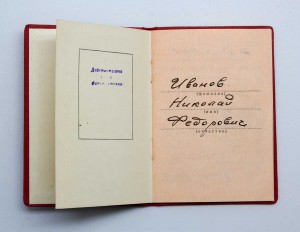 Иванов
(фамилия)
Николай
(имя)
Федорович
(отчество)